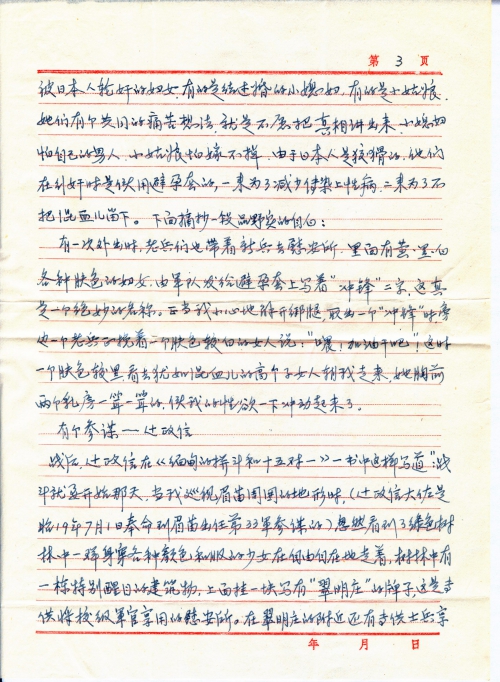 第 3 页
被日本人轮奸的妇女,有的是结过婚的小媳妇,有的是小姑娘.
她们有个共同的痛苦想法,就是不愿把真相讲出来,小媳妇
怕自己的男人,小姑娘怕嫁不掉,由于日本人是狡猾的,他们
在外奸时是使用避孕套的,一来为了减少传染上性病,二来为了不
把混血儿留下。下面摘抄一段品野实的自白:
有一次外出时,老兵们也带着新兵去慰安所,里面有黄、黑、白
各种肤色的妇女,由军队发给避孕套上写着"冲锋"二字,这真
是一个绝妙的名称。正当我小心地解开绑腿,取出一个"冲锋"时旁
边一个老兵正搂着一个肤色较白的女人说:"喂!加油干吧!"这时
一个肤色较黑看去犹如混血儿的高个子女人朝我走来,她胸前
两个乳房一耸一耸的,使我的性欲一下冲动起来了。
有个参谋——辻政信
战后,辻政信在《缅甸的搏斗和十五对一》一书中这样写道"战
斗就要开始那天,当我巡视眉苗周围的地形时,(辻政信大佐是
昭19年7月1日奉命到眉苗出任第33军参谋的)忽然看到了绿色树
林中一群身穿各种颜色和服的少女在自由自在地走着,树林中有
一栋特别醒目的建筑物,上面挂一块写有"翠明庄"的牌子,这是专
供将校级军官享用的慰安所。在翠明庄的附近还有专供士兵享
年 月 日